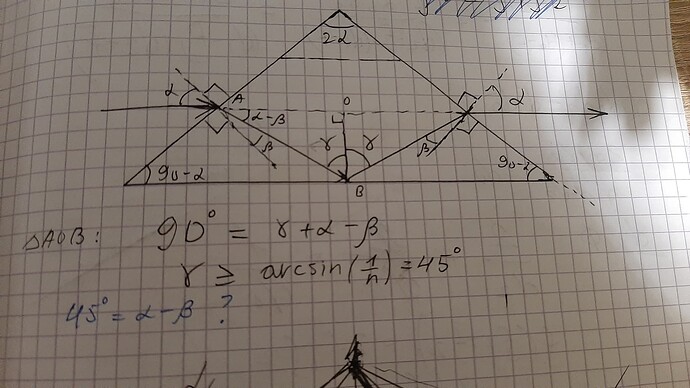 2α
α
A
O
α
α-β
β
γ
γ
β
90-α
90-α
B
△AOB: 90° = γ+α-β
γ ≥ arcsin(1/n) = 45°
45° = α-β ?